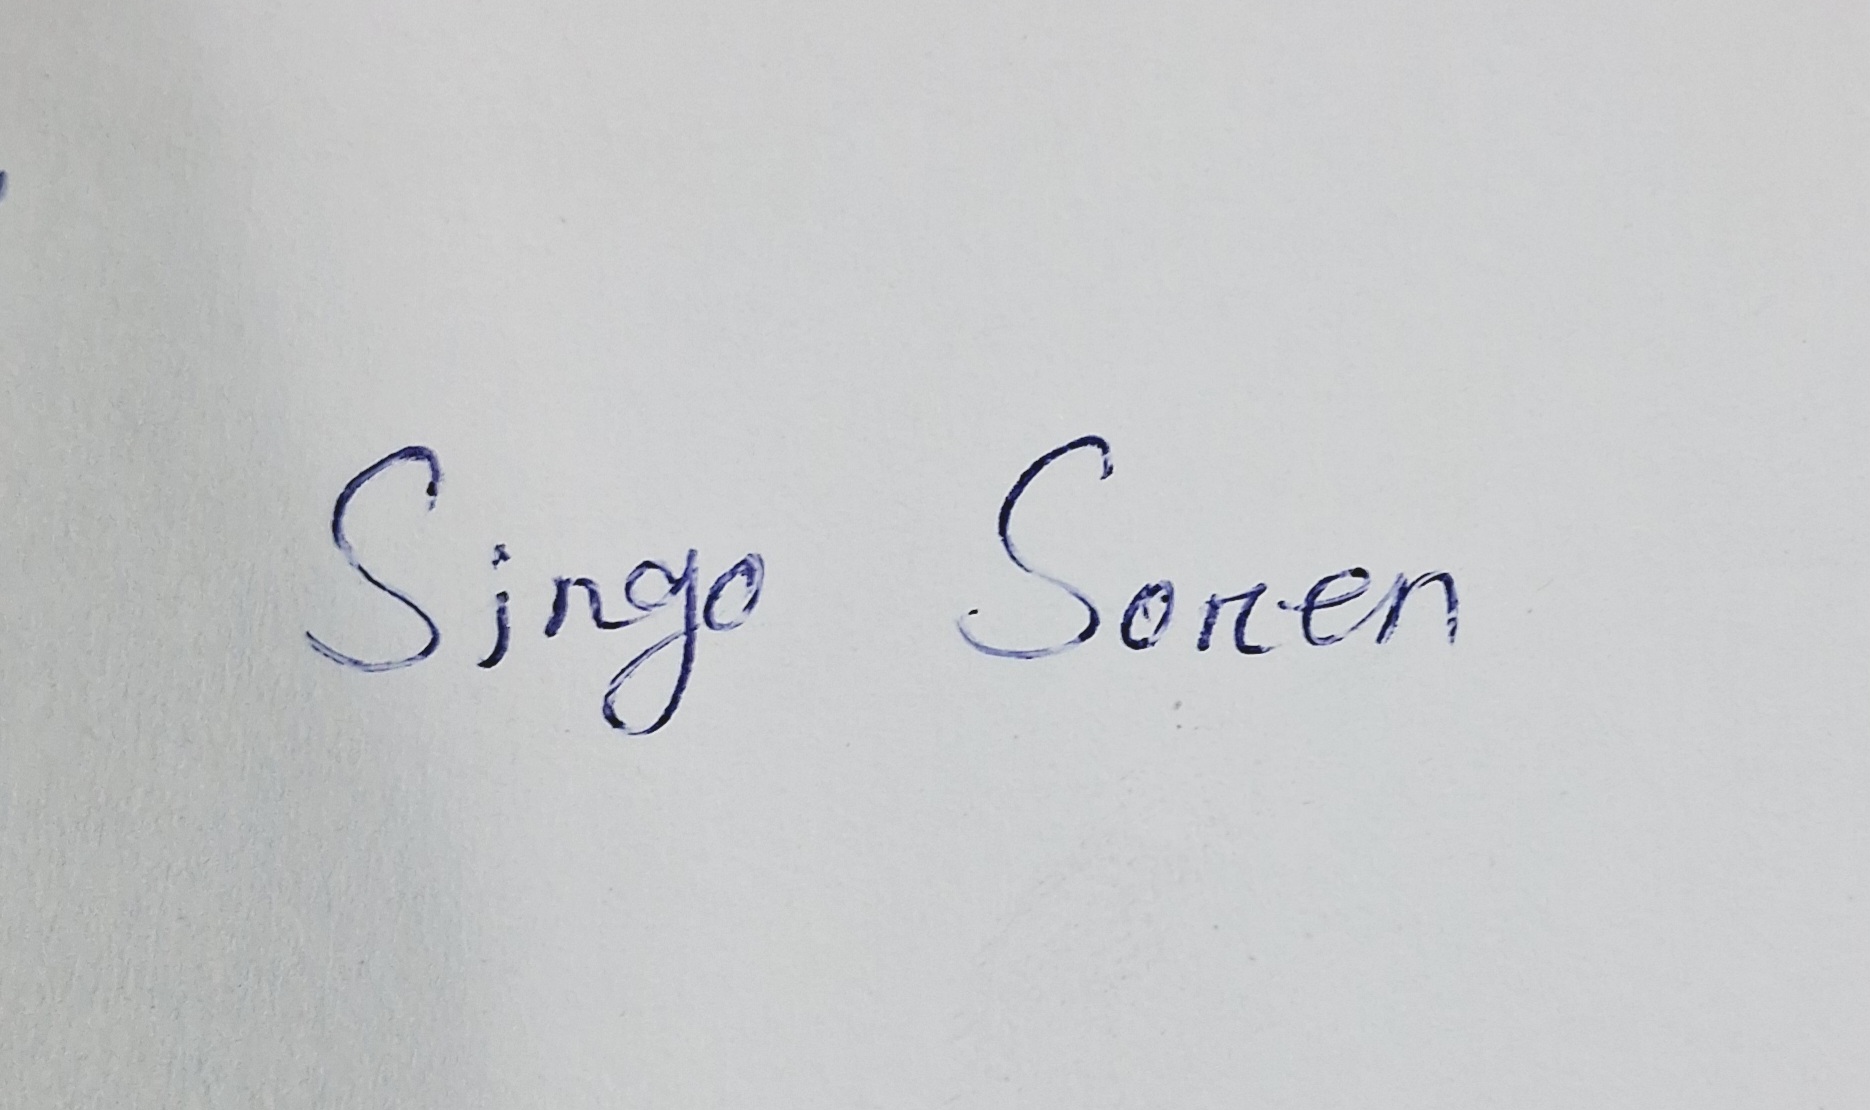 Singo Soren